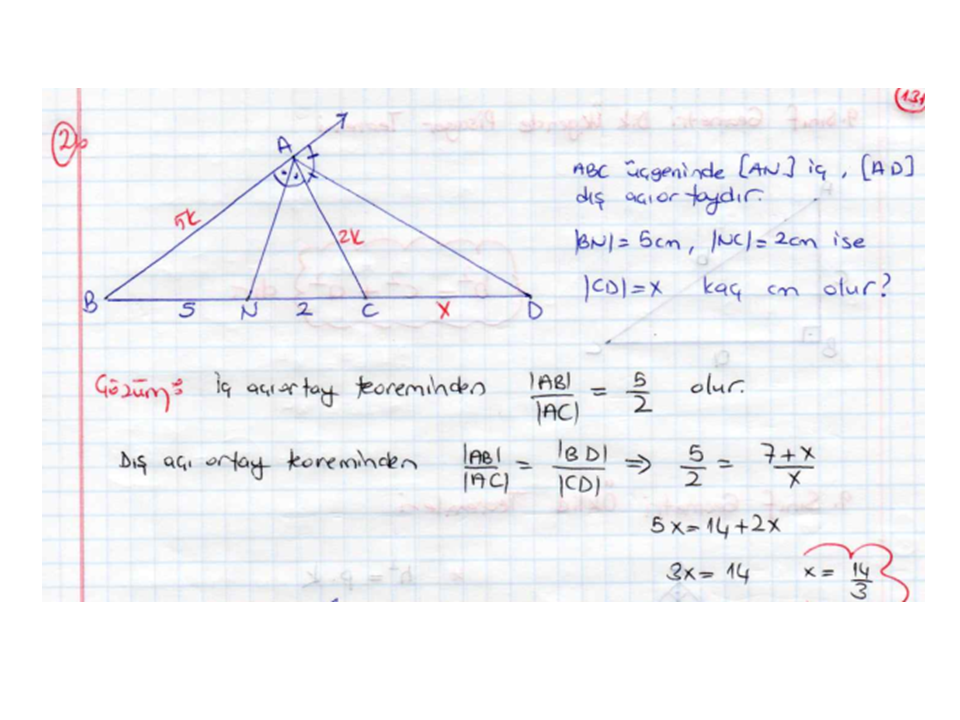 131
2
A
5k
2k
B 5 N 2 C x D
ABC üçgeninde [AN] iç, [AD]
dış açıortaydır.
|BN| = 5cm, |NC| = 2cm ise
|CD| = x kaç cm olur?
Çözüm: İç açıortay teoreminden |AB|/|AC| = 5/2 olur.
Dış açı ortay teoreminden |AB|/|AC| = |BD|/|CD| ⇒ 5/2 = 7+x/x
5x = 14 + 2x
3x = 14 x = 14/3